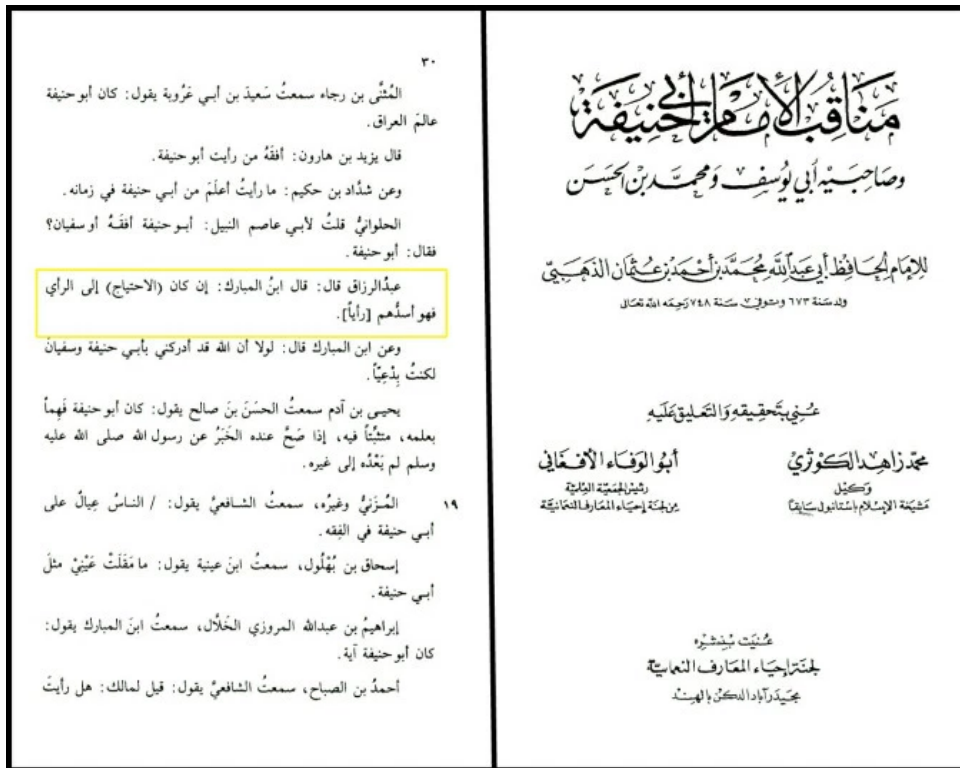 مناقب الإمام أبي حنيفة
وصاحبيه أبي يوسف ومحمد بن الحسن
للإمام الحافظ أبي عبد الله محمد بن أحمد بن عثمان الذهبي
ولد سنة ٦٧٣ وتوفي سنة ٧٤٨ رحمه الله تعالى
عني بتحقيقه والتعليق عليه
محمد زاهد الكوثري
وكيل
مشيخة الإسلام باستانبول سابقا
أبو الوفاء الأفغاني
رئيس الجمعية العلمية
من لجنة إحياء المعارف النعمانية
عنيت بنشره
لجنة إحياء المعارف النعمانية
بحيدرآباد الدكن بالهند
٣٠
المُثنَّى بن رجاء سمعتُ سَعيدَ بن أبي عَرُوبة يقول: كان أبو حنيفة
عالمَ العراق.
قال يزيد بن هارون: أفقَهُ من رأيت أبو حنيفة.
وعن شدَّاد بن حكيم: ما رأيتُ أعلَمَ من أبي حنيفة في زمانه.
الحلوانيُّ قلتُ لأبي عاصم النبيل: أبو حنيفة أفقَهُ أو سفيان؟
فقال: أبو حنيفة.
عبدُ الرزاق قال: قال ابنُ المبارك: إن كان (الاحتياج) إلى الرأي
فهو أسدُّهم [رأياً].
وعن ابن المبارك قال: لولا أن الله قد أدركني بأبي حنيفة وسفيانَ
لكنتُ بِدْعِيّاً.
يحيى بن آدم سمعتُ الحسَنَ بنَ صالح يقول: كان أبو حنيفة فَهِماً
بعلمه، متثبِّتاً فيه، إذا صَحَّ عنده الخَبَرُ عن رسول الله صلى الله عليه
وسلم لم يَعْدُه إلى غيره.
١٩ المُزَنيُّ وغيرُه، سمعتُ الشافعيَّ يقول: / الناسُ عِيالٌ على
أبي حنيفة في الفِقه.
إسحاق بن بُهْلُول، سمعتُ ابنَ عيينة يقول: ما مَقَلَتْ عَيْنِيْ مثلَ
أبي حنيفة.
إبراهيمُ بن عبدالله المروزي الخَلَّال، سمعتُ ابنَ المبارك يقول:
كان أبو حنيفة آية.
أحمدُ بن الصباح، سمعتُ الشافعيَّ يقول: قيل لمالك: هل رأيتَ